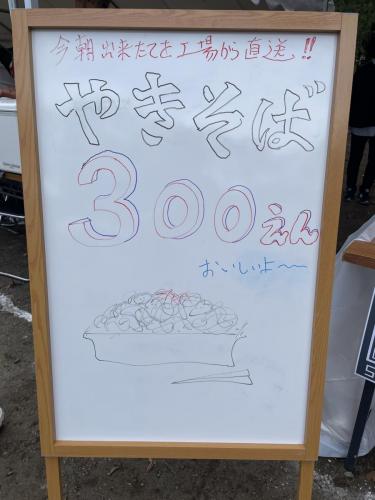 今朝出来たてを工場から直送!!
やきそば
300えん
おいしいよ〜